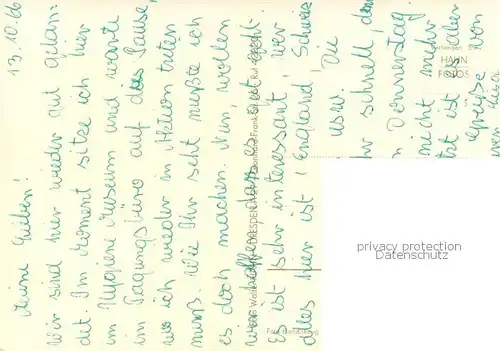 13.10.66
Meine Lieben!
Wir sind hier wieder gut gelan-
det. Im Moment sitze ich hier
im Hygiene Museum und warte
im Tagungsbüro auf die Pause,
wo ich wieder in Aktion treten
muß. Wie Ihr seht mußte ich
es doch machen. Nun, wollen
wir hoffen, daß es gut geht.
Es ist sehr interessant, wer
alles hier ist! England, Schweiz
usw. Die
schnell, den
Donnerstag
nicht mehr
ist aber
Grüße von
HAHN
FOTOS
DRESDEN
privacy protection
Datenschutz